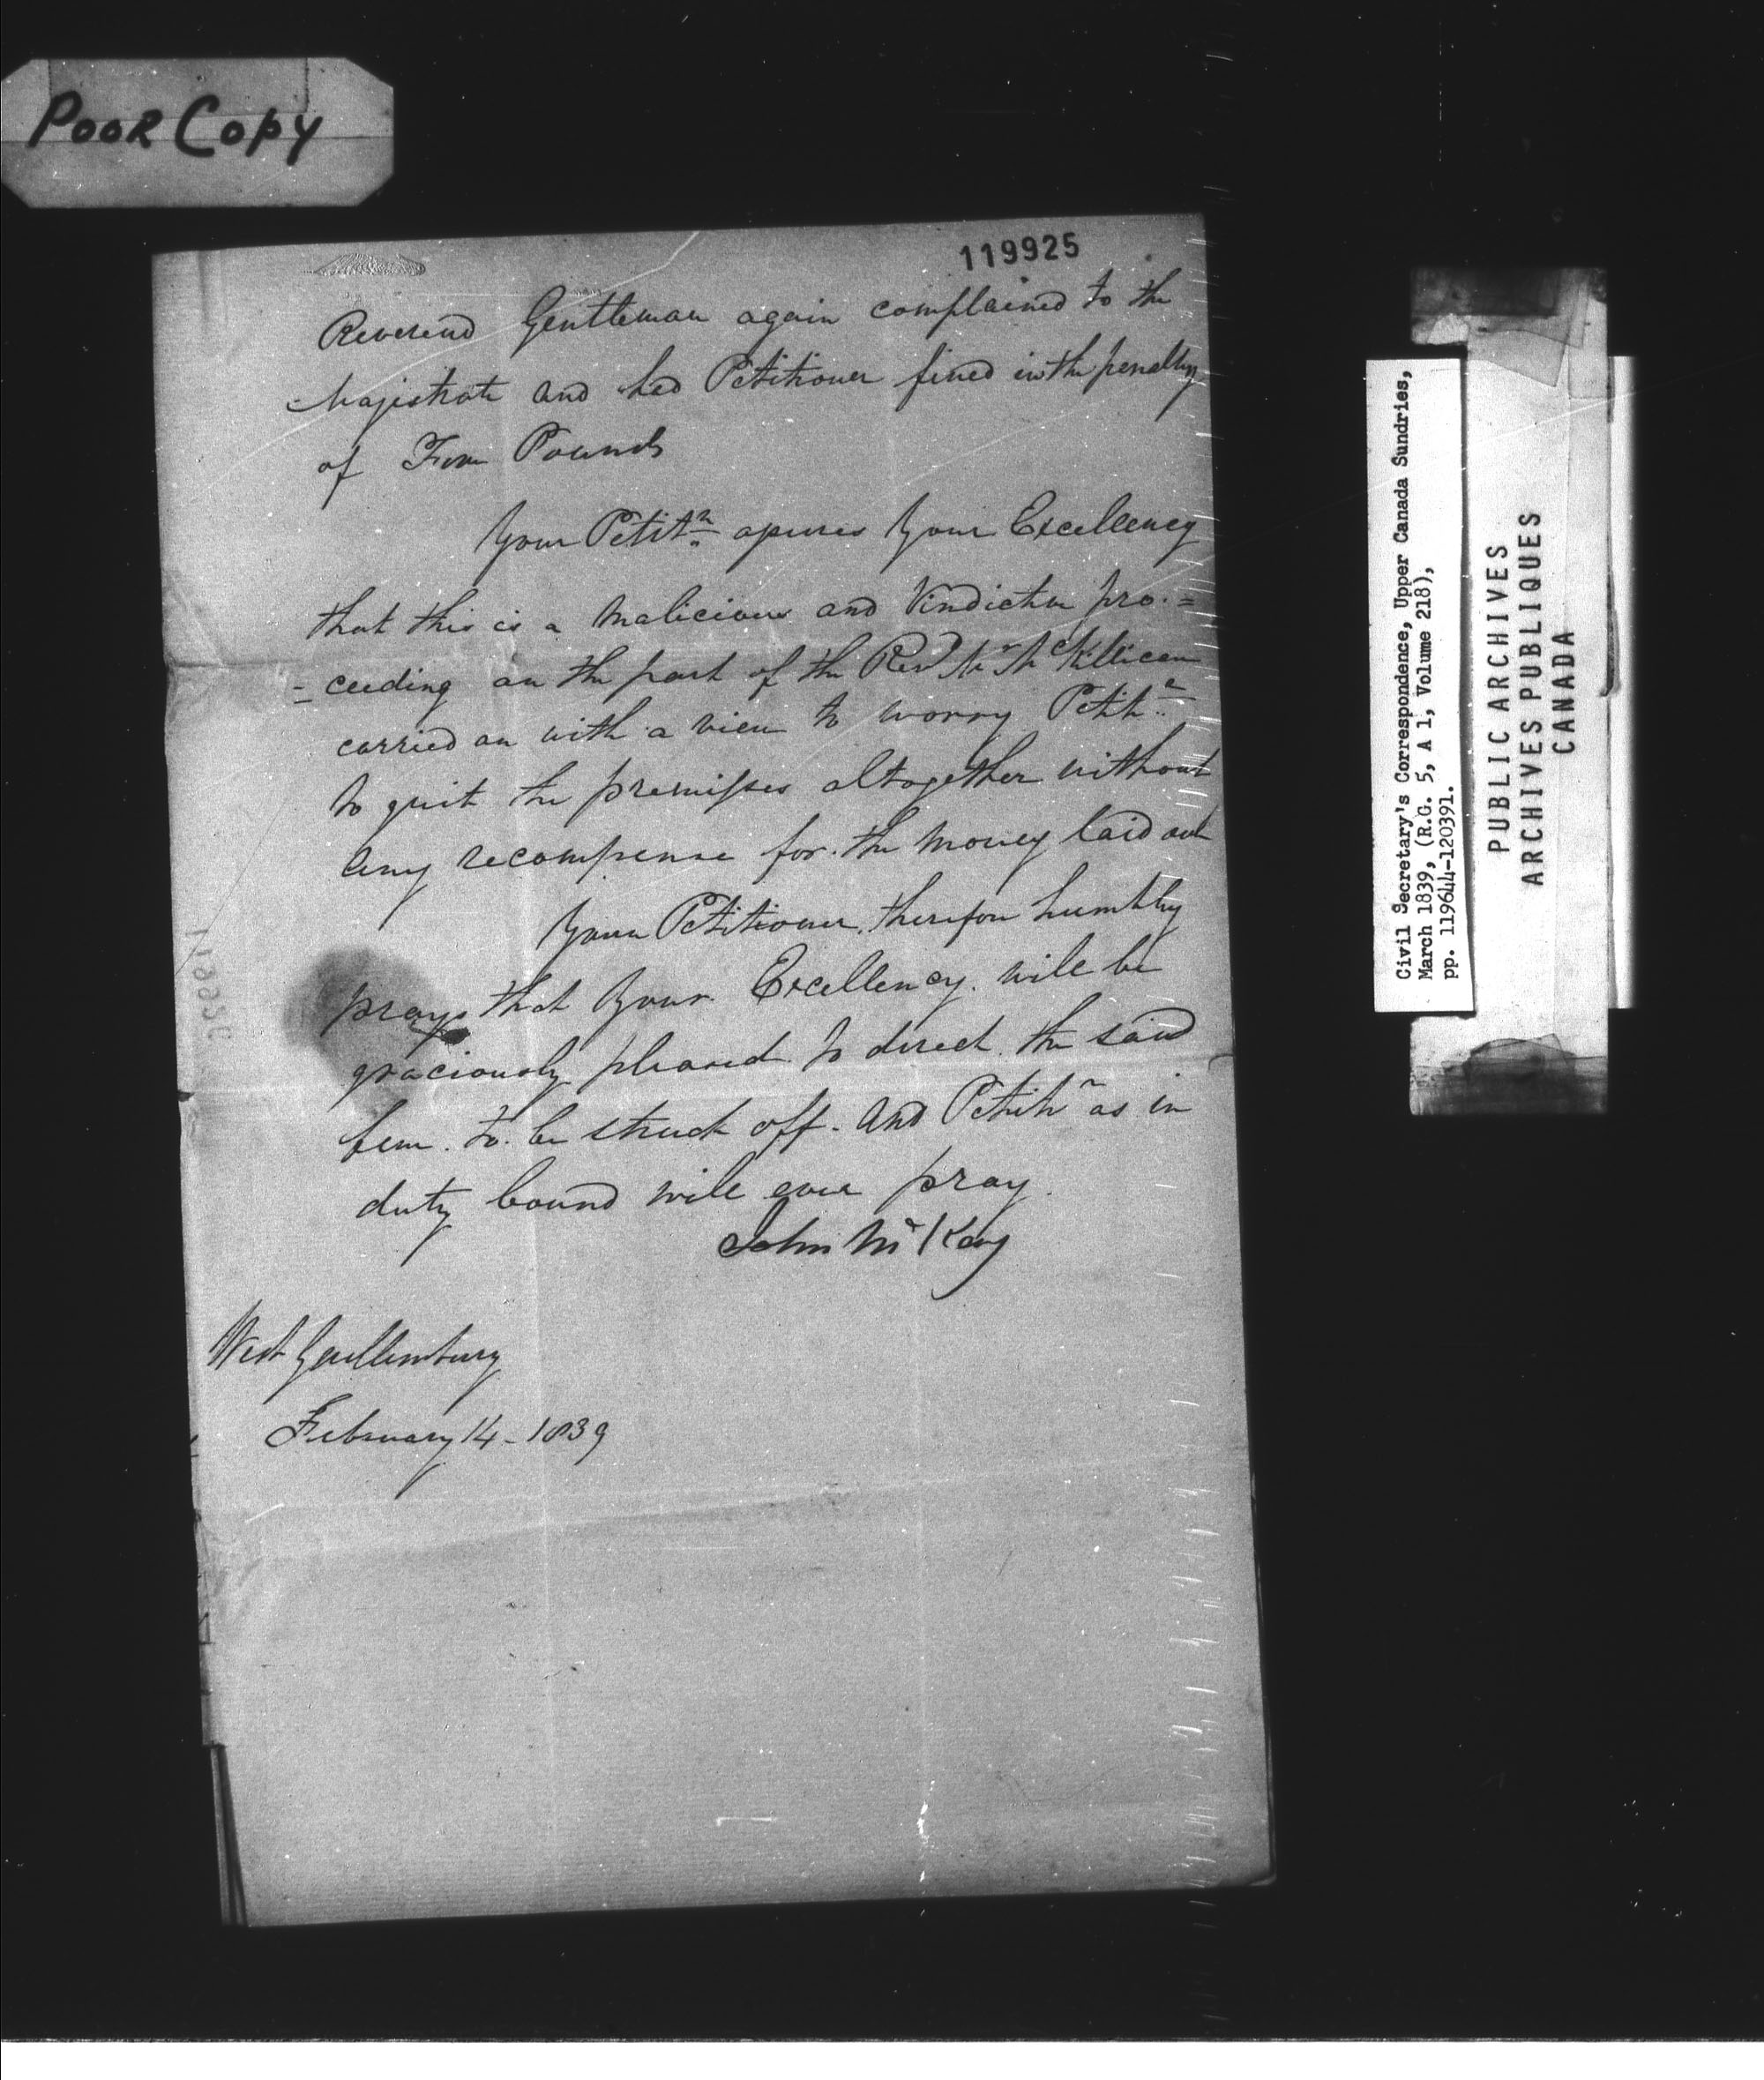 Poor Copy
119925
Reverend Gentleman again complained to the
Majistrate and had Petitioner fined in the penalty
of Pounds
Your Petitr. apures Your Excellency
that this is a Malicious and Vindictive pro.=
= ceeding on the part of the Revd Mr McKillican
carried on with a view to worry Petitr.
to quit the premisses altogether without
any recompense for the money laid out
Your Petitioner therefore humbly
prays that Your Excellency will be
graciously pleased to direct the said
fine to be struck off. And Petitr as in
duty bound will ever pray.
John McKay
West Guillimbury
February 14 - 1839
Civil Secretary's Correspondence, Upper Canada Sundries,
March 1839, (R.G. 5, A 1, Volume 218),
pp. 119644-120391.
PUBLIC ARCHIVES
ARCHIVES PUBLIQUES
CANADA